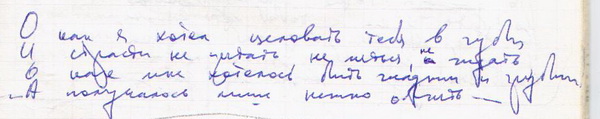 О как я хотел целовать тебя в губы
И страсти не питать не питься, не гадать
О как мне хотелось быть гладким и грубым
А получалось лишь нежно обнять —